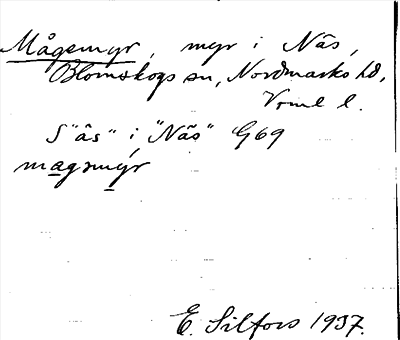 Mågsmyr, myr i Näs,
Blomskogs sn, Nordmarks hd,
Vrml l.
S "äs" i "Näs" G69
magsmýr
E. Silfors 1937.